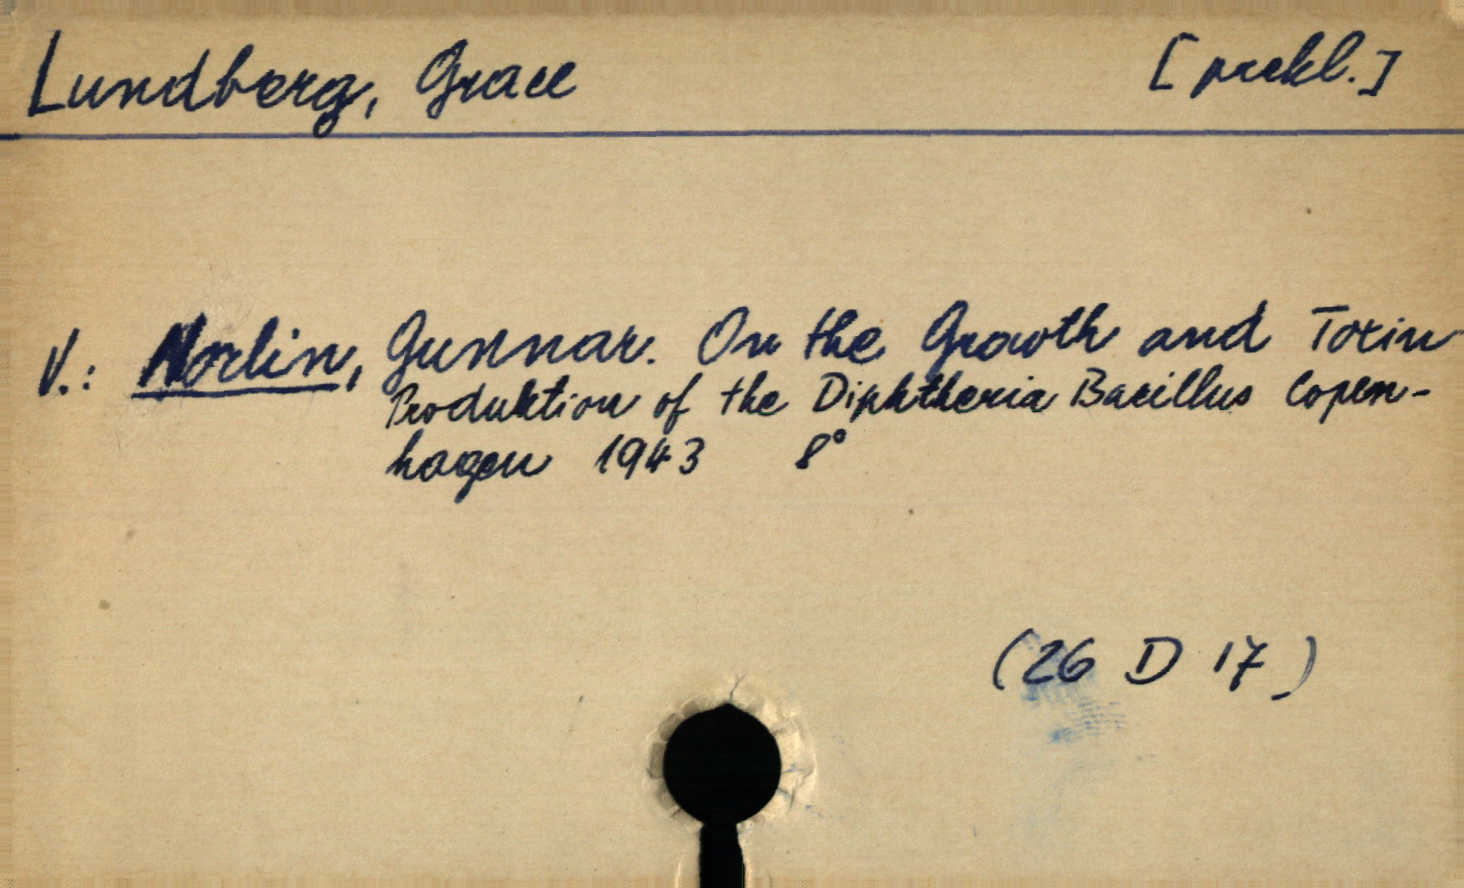 Lundberg, Grace [překl.]
V.: Norlin, Gunnar. On the Growth and Toxin
Produktion of the Diphtheria Bacillus Copen-
hagen 1943 8°
(26 D 17)